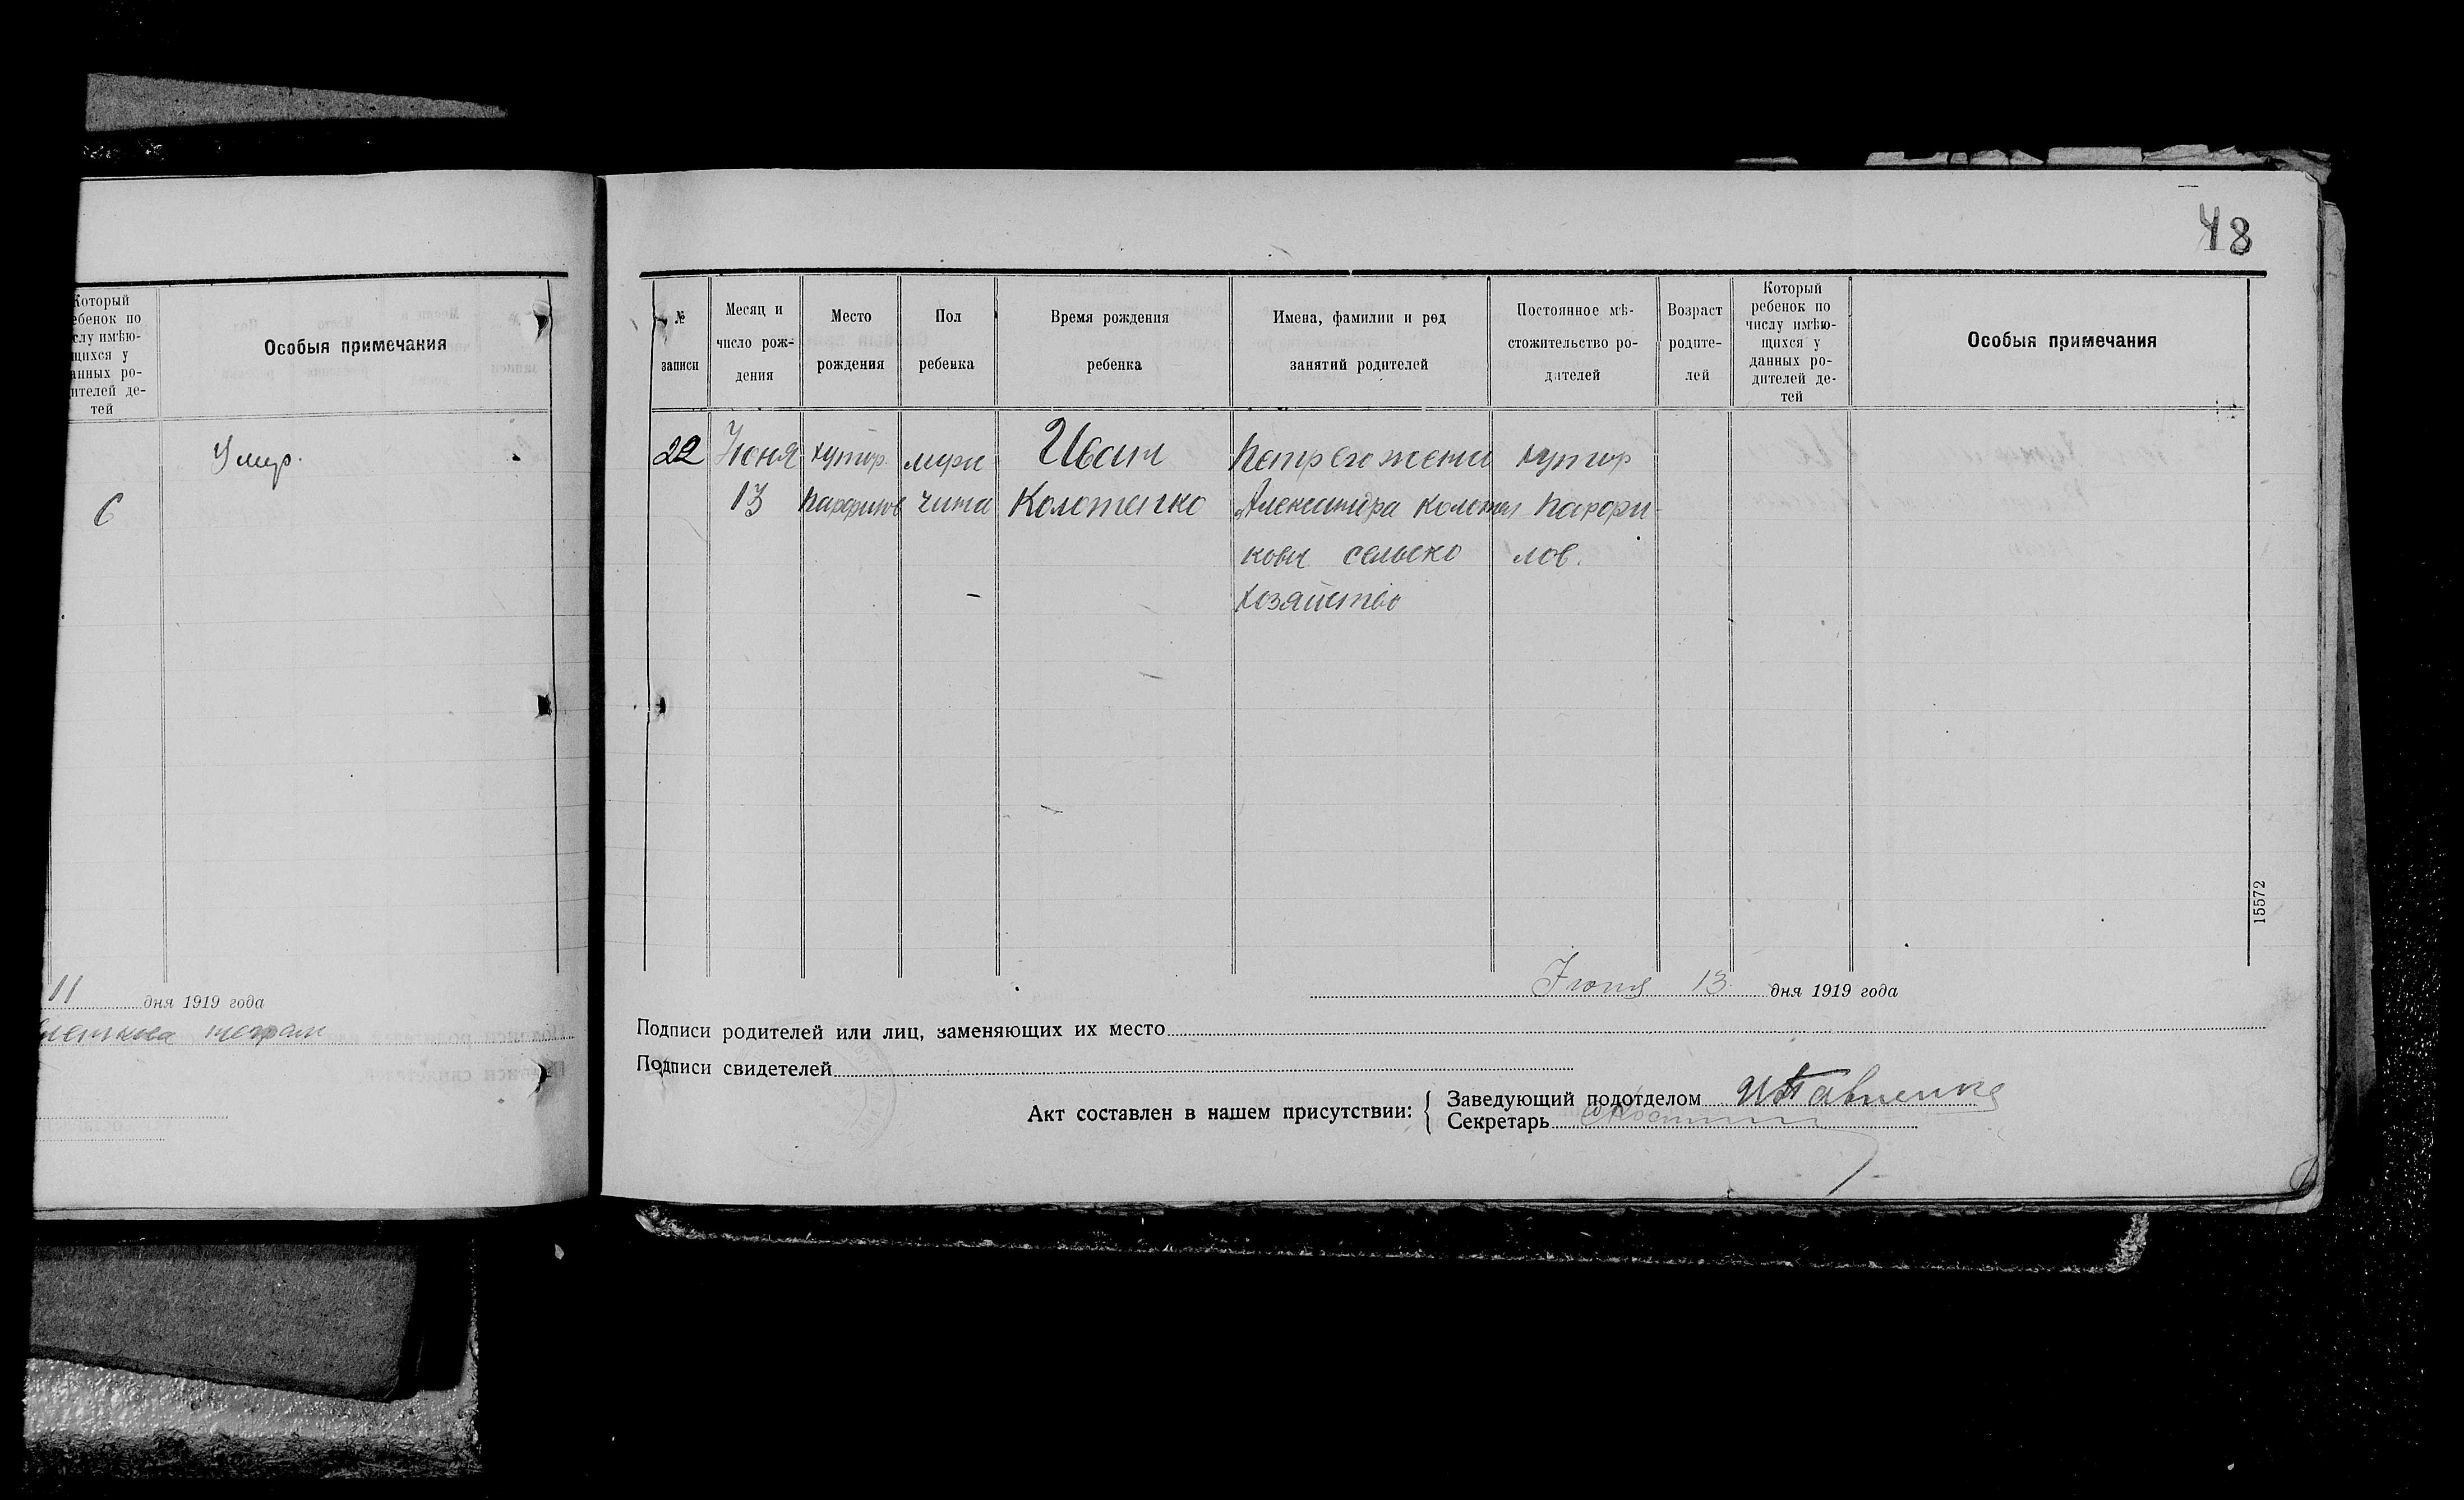 48
Который
ебенок по
слу имѣю-
щихся у
анных ро-
ителей де-
тей
Особыя примечания
Умер.
6
11 дня 1919 года
№
записи
Месяц и
число рож-
дения
Место
рождения
Пол
ребенка
Время рождения
ребенка
Имена, фамилии и род
занятий родителей
Постоянное мѣ-
стожительство ро-
дителей
Возраст
родите-
лей
Который
ребенок по
числу имѣю-
щихся у
данных ро-
дителей де-
тей
Особыя примечания
22
Июня
13
хутор
Парфилов
мужс
чина
Иван
Колотенко
Петр его жена
Александра Колотен
ковы сельско
хозяйство
хутор
Парфи-
лов.
15572
Июня 13 дня 1919 года
Подписи родителей или лиц, заменяющих их место
Подписи свидетелей
Акт составлен в нашем присутствии:
Заведующий подотделом
Секретарь